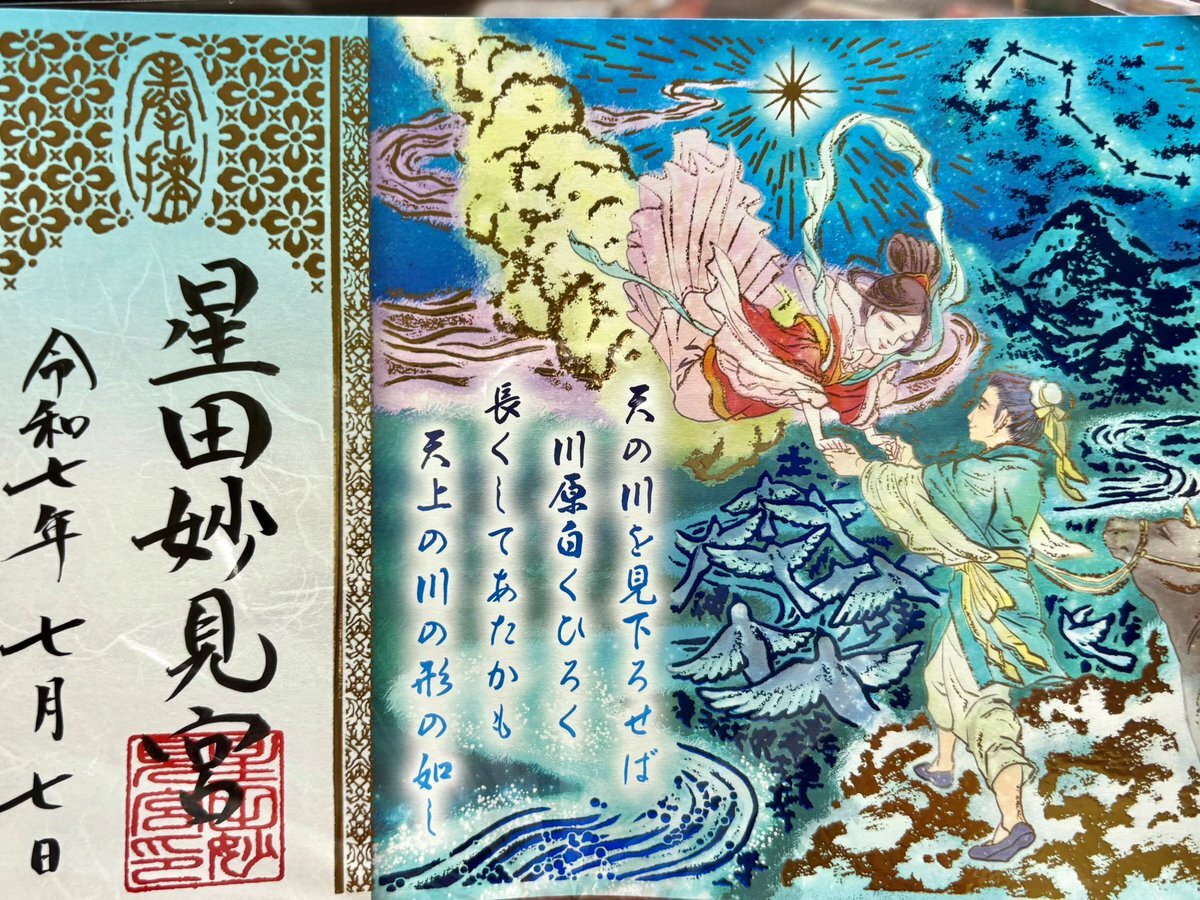 天の川を見下ろせば
川原白くひろく
長くしてあたかも
天上の川の形の如し
奉拝
星田妙見宮
令和七年 七月七日